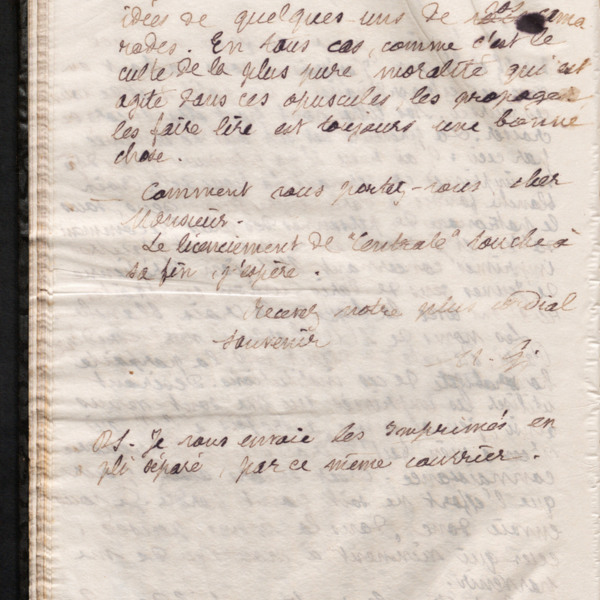 idées de quelques uns de ca ma
rades. En tous cas, comme c'est le
culte de la plus pure moralité qui est
agité dans ces opuscules, les propager
les faire lire est toujours une bonne
chose.
Comment vous portez-vous cher
Monsieur.
Le licenciement de "Centrale" touche à
sa fin, j'espère.
Recevez notre plus cordial
souvenir
PS. Je vous envoie les Imprimés en
pli séparé, par ce même courrier.